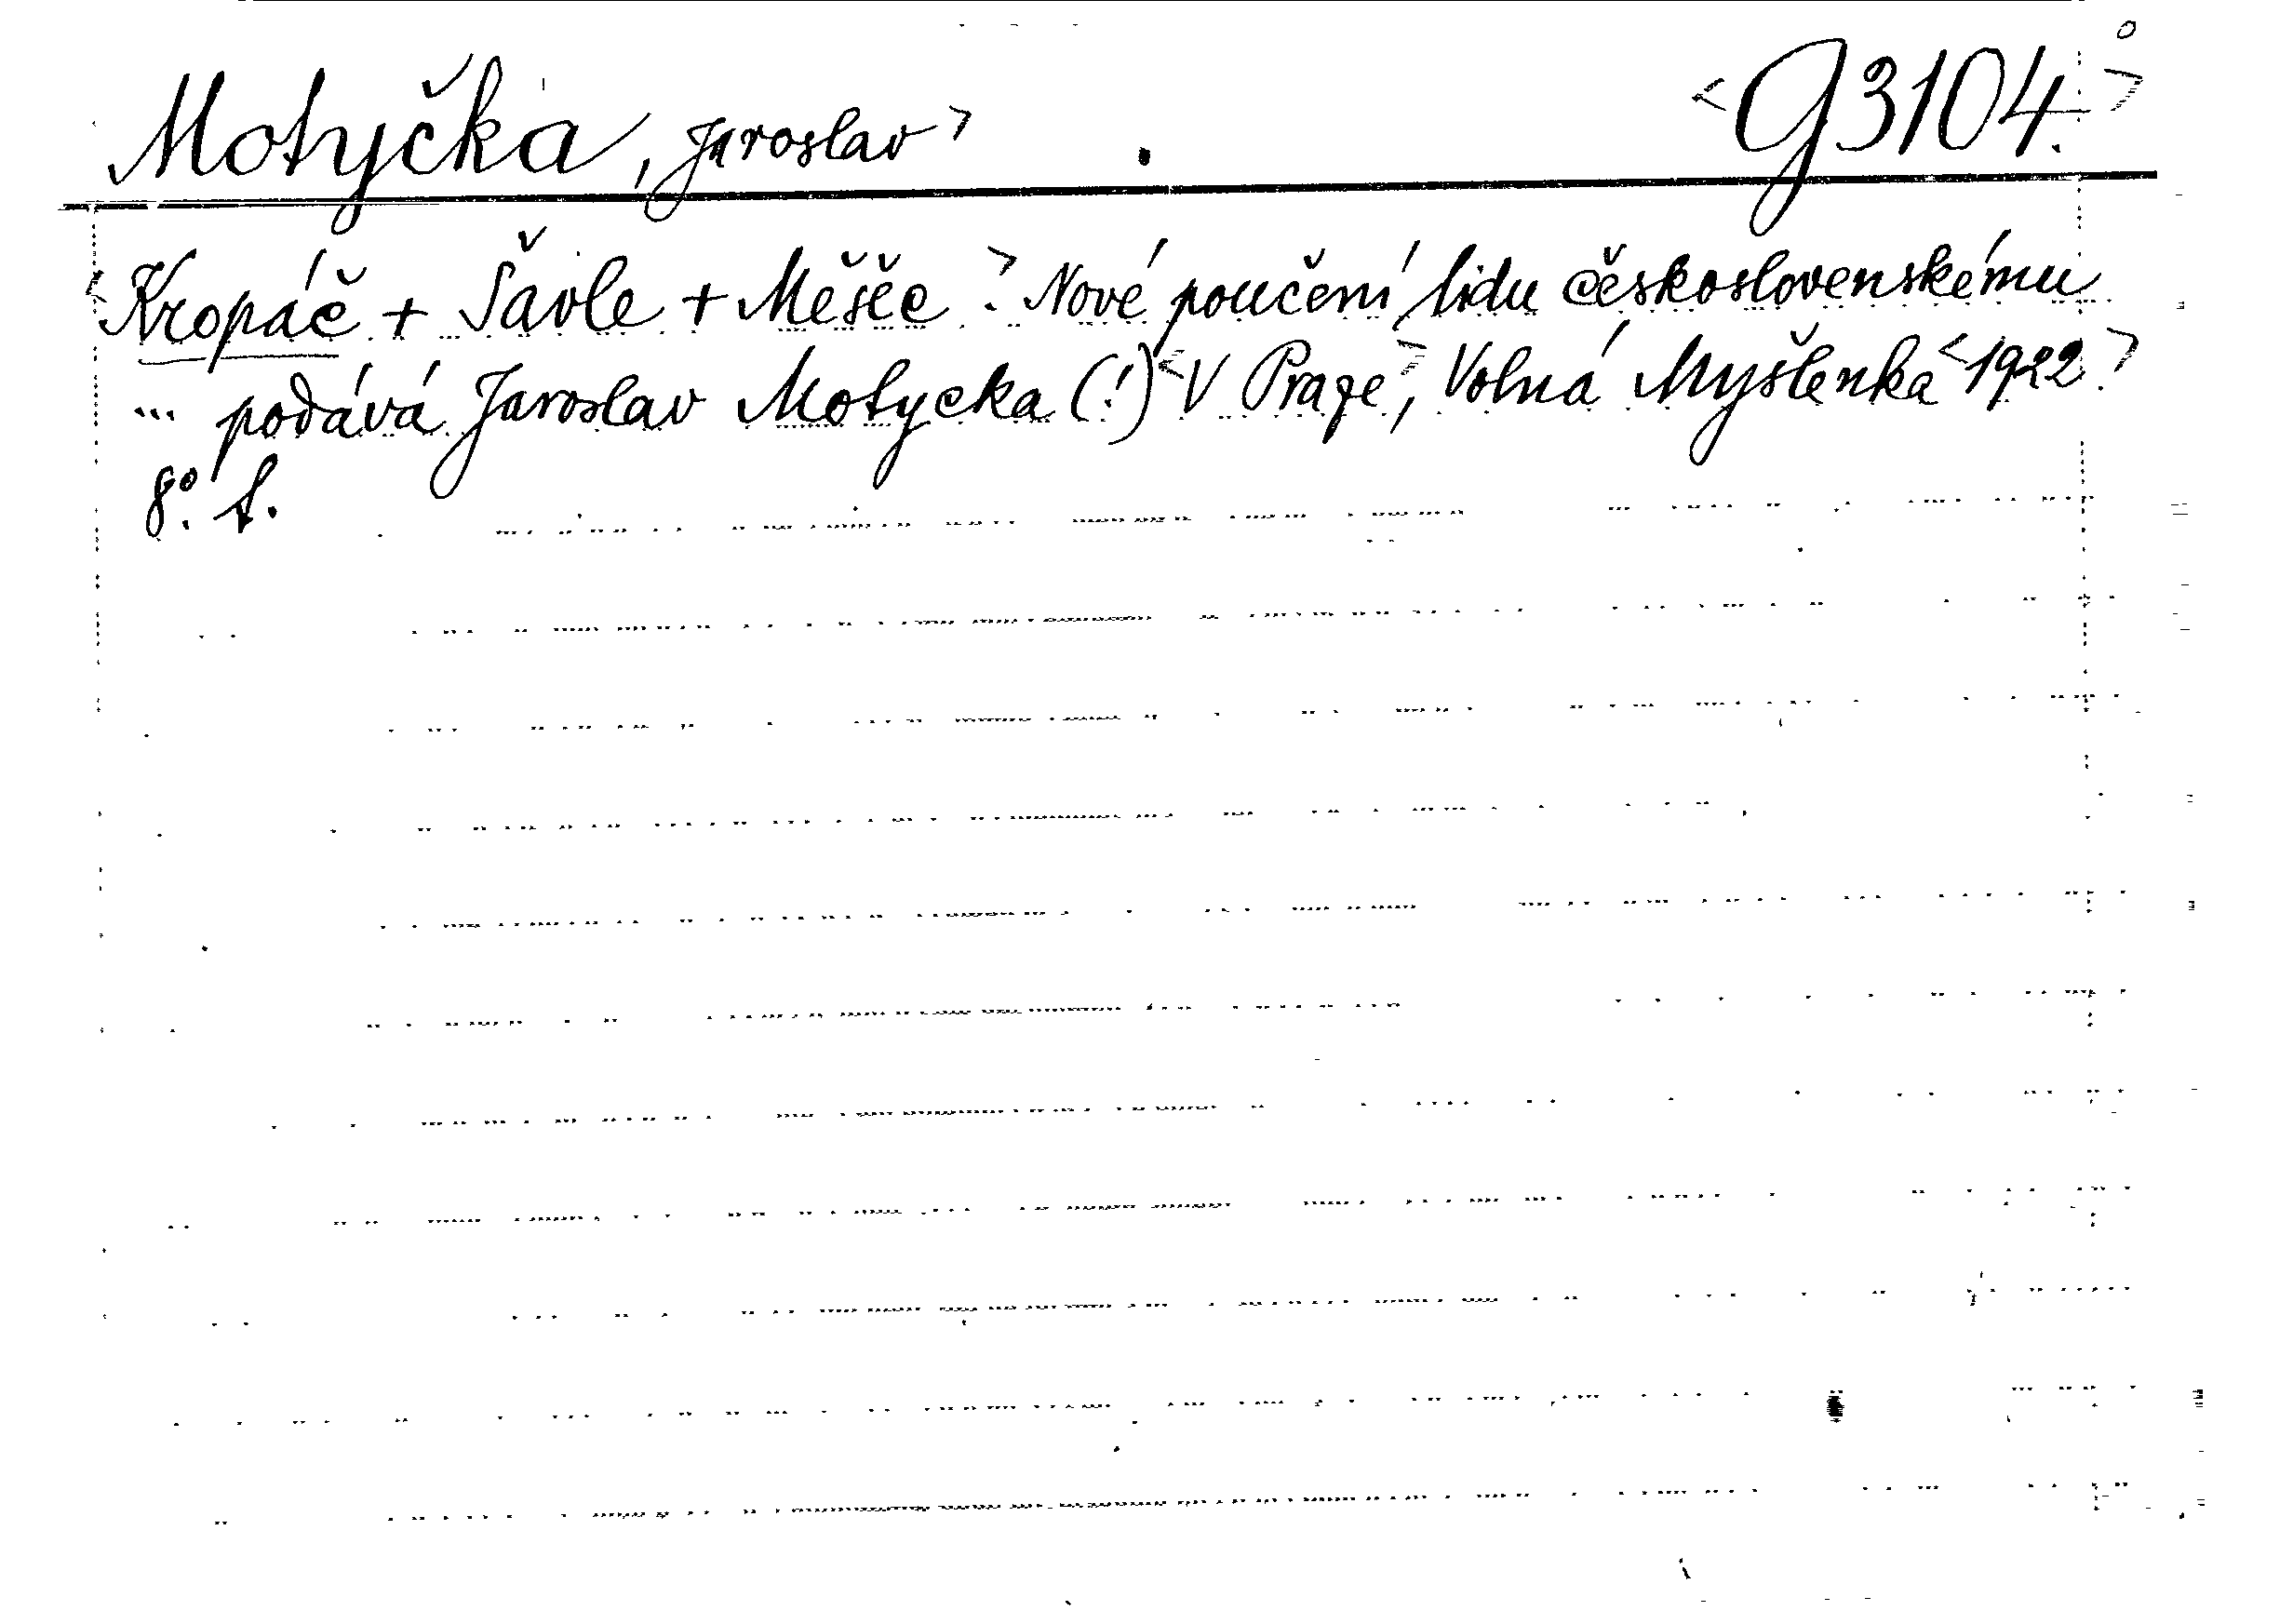 Motyčka, Jaroslav> <G3104.>
<Kropáč + Šavle + Měšec.> Nové poučení lidu československému
... podává Jaroslav Motycka (!) <V Praze>, Volná Myšlenka <1922.>
8°. S.